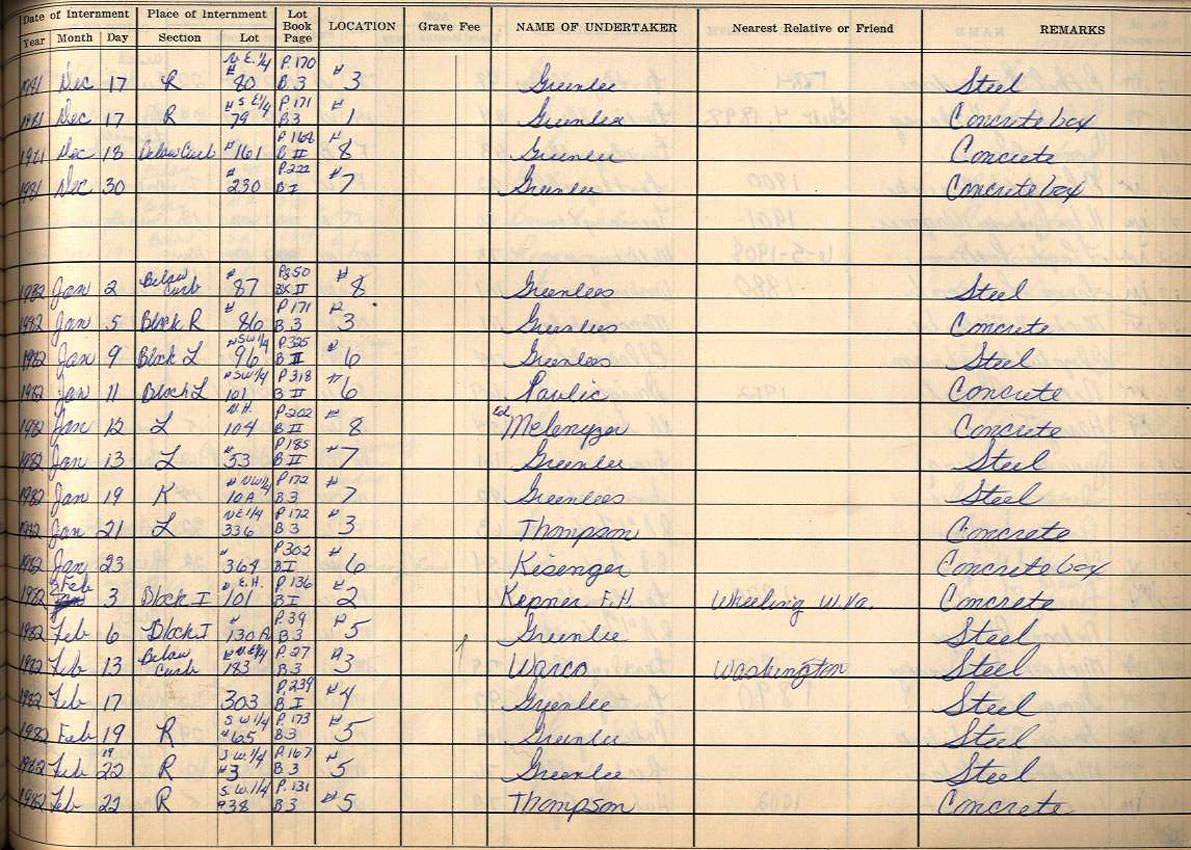 Date of Internment Place of Internment Lot Book Page LOCATION Grave Fee NAME OF UNDERTAKER Nearest Relative or Friend REMARKS
Year Month Day Section Lot
N.E.1/4 P.170
1981 Dec 17 R # 80 B.3 # 3 Greenlee Steel
# S E1/4 P.171
1981 Dec 17 R 79 B3 # 1 Greenlee Concrete box
P.168
1981 Dec 18 Below Curb #161 B II # 8 Greenlee Concrete
# P.222
1981 Dec 30 230 B I # 7 Greenlee Concrete box
Below # P350 #
1982 Jan 2 Curb 87 BK II 8 Greenlees Steel
# P.171
1982 Jan 5 Block R 86 B 3 # 3 Greenlees Concrete
# SW1/4 P.325
1982 Jan 9 Block L 96 B II # 6 Greenlees Steel
# SW1/4 P.318
1982 Jan 11 Block L 101 B II # 6 Pavlic Concrete
N.H. P.202
1982 Jan 12 L 104 B II # 8 Ed Melenyzer Concrete
P.185
1982 Jan 13 L # 53 B II # 7 Greenlee Steel
# NW1/4 P.172
1982 Jan 19 K 10A B.3 # 7 Greenlees Steel
NE1/4 P.172
1982 Jan 21 L 336 B 3 # 3 Thompson Concrete
# P.302
1982 Jan 23 364 B I # 6 Kisenger Concrete box
Feb # E.H. P.136
1982 3 Block I 101 B I # 2 Kepner F.H. Wheeling W.Va. Concrete
# P.39
1982 Feb 6 Block I 130A B.3 # 5 Greenlee Steel
Below # N.E1/4 P.27
1982 Feb 13 Curb 183 B.3 # 3 Warco Washington Steel
P.239
1982 Feb 17 303 B I # 4 Greenlee Steel
S W 1/4 P.173
1982 Feb 19 R # 65 B.3 # 5 Greenlee Steel
19 S W.1/4 P.167
1982 Feb 22 R # 3 B.3 # 5 Greenlee Steel
S W.1/4 P.131
1982 Feb 22 R # 38 B 3 # 5 Thompson Concrete